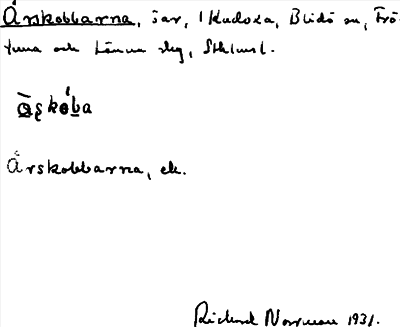 Årskobbarna, öar, i Kudoxa, Blidö sn, Frö-
tuna och Länna slg, Sthlmsl.
Årskobbarna, ek.
Richard Norrman 1931.